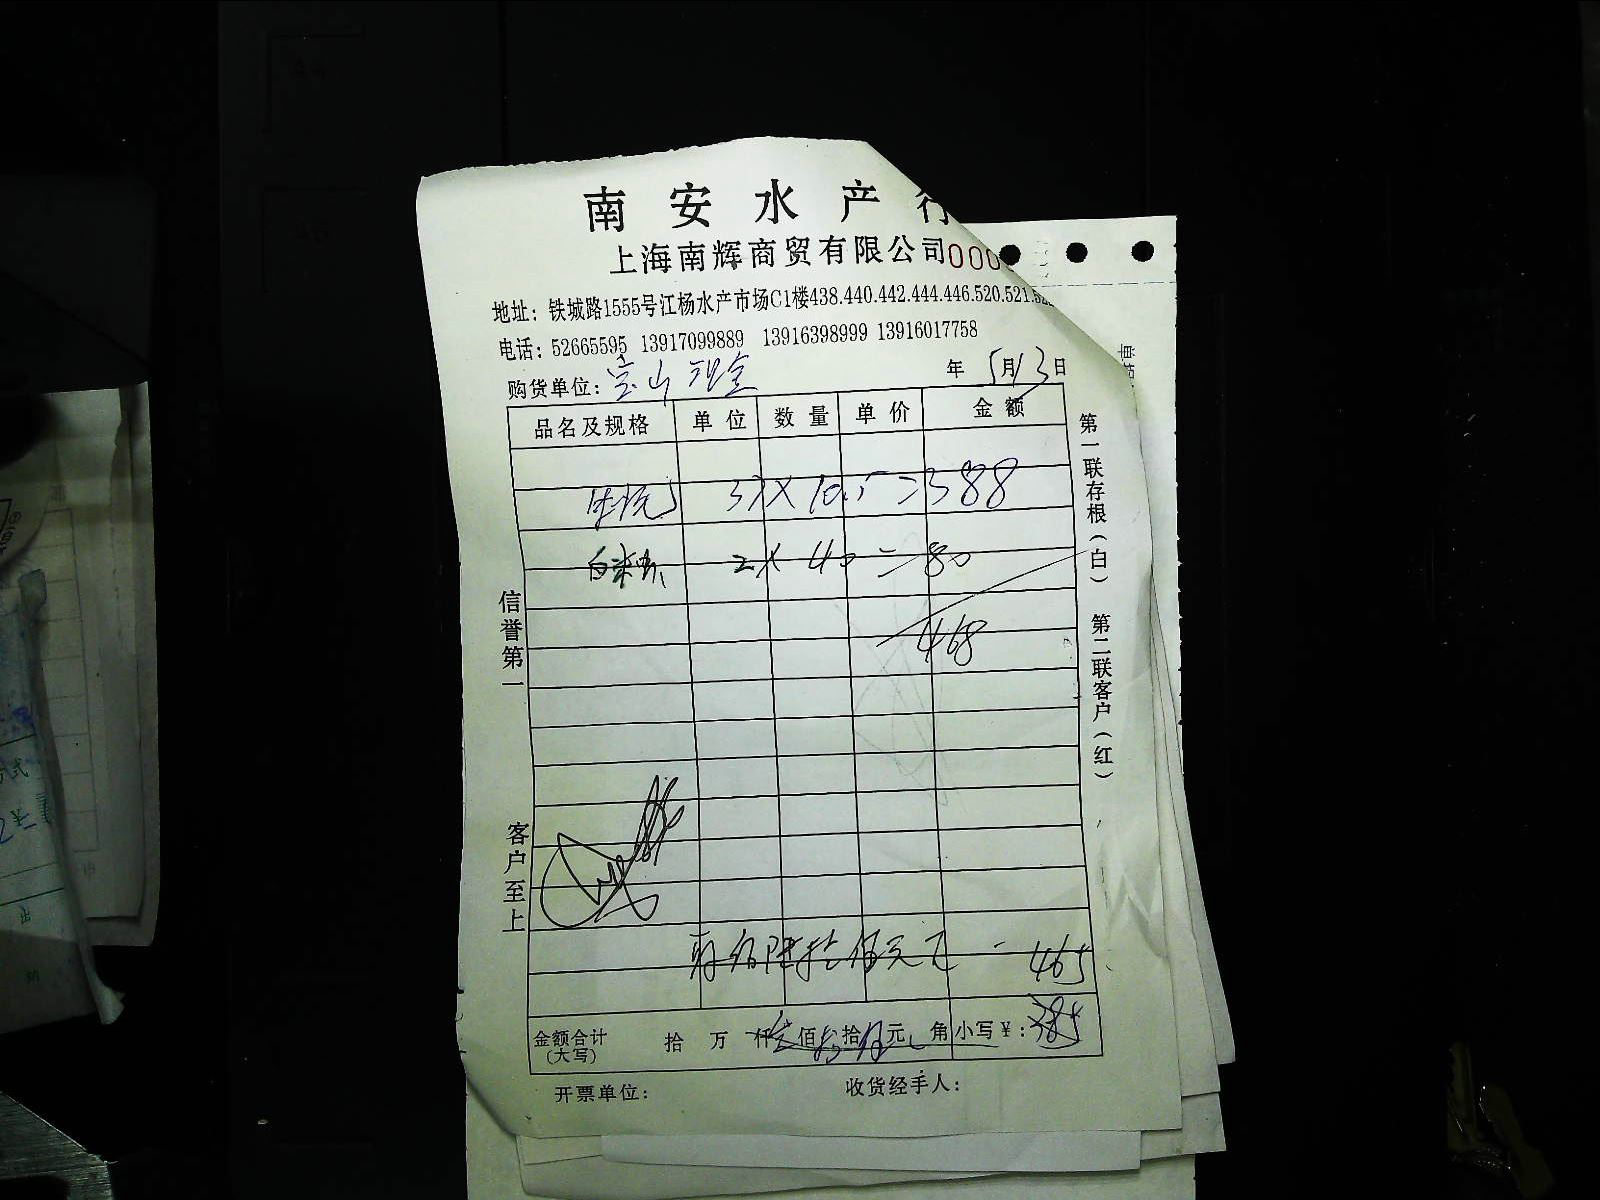 南安水产行
上海南辉商贸有限公司 000
地址：铁城路1555号江杨水产市场C1楼438.440.442.444.446.520.521.52
电话：52665595 13917099889 13916398999 13916017758
购货单位：宝山现金 年 5月13日
品名及规格 单位 数量 单价 金额
37×10.5=388
白米虾 2×40=80
468
肆佰陆拾伍元正 465
金额合计(大写) 拾 万 仟 佰 拾 元 角 小写￥：385
开票单位： 收货经手人：
信誉第一
客户至上
第一联存根(白) 第二联客户(红)